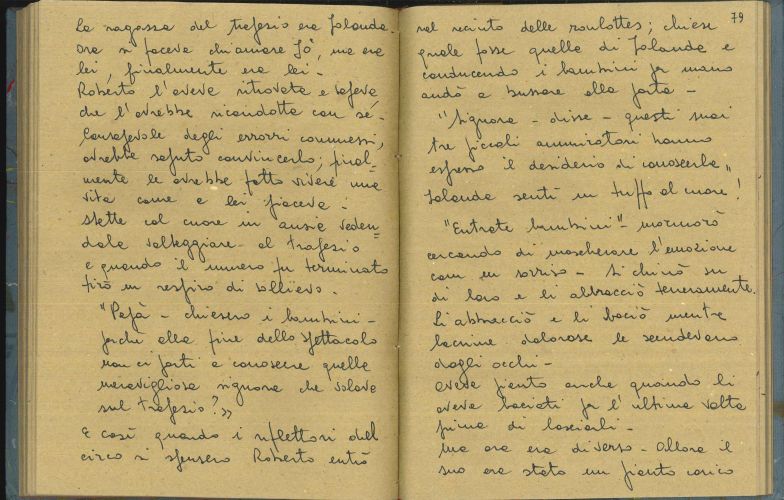 La ragazza del trapezio era Jolanda
Ora si faceva chiamare Jò, ma era
lei, finalmente era lei -
Roberto l'aveva ritrovata e sapeva
che l'avrebbe ricondotta con sé -
Consapevole degli errori commessi,
avrebbe saputo convincerla; final=
mente le avrebbe fatto vivere una
vita come a lei piaceva -
Stette col cuore in ansia veden=
dola volteggiare al trapezio
e quando il numero fu terminato
tirò un respiro di sollievo -
"Papà - chiesero i bambini -
perché alla fine dello spettacolo
non ci porti a conoscere quella
meravigliosa signora che volava
sul trapezio?"
E così quando i riflettori del
circo si spensero Roberto entrò
79
nel recinto delle roulottes; chiese
quale fosse quella di Jolanda e
conducendo i bambini per mano
andò a bussare alla porta -
"Signora - disse - questi suoi
tre piccoli ammiratori hanno
espresso il desiderio di conoscerla"
Jolanda sentì un tuffo al cuore!
"Entrate bambini" - mormorò
cercando di mascherare l'emozione
con un sorriso - Si chinò su
di loro e li abbracciò teneramente.
Li abbracciò e li baciò mentre
lacrime dolorose le scendevano
dagli occhi -
Aveva pianto anche quando li
aveva baciati per l'ultima volta
prima di lasciarli -
Ma ora era diverso - Allora il
suo era stato un pianto carico